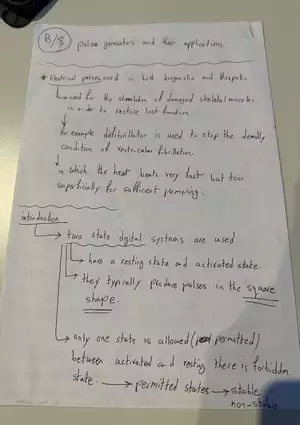 B/8 pulse generators and their applications.
* Electrical pulses used in both diagnostic and therapeutic
↳ used for the stimulation of damaged skeletal muscles
in order to restore lost function.
for example defibrillator is used to stop the deadly
condition of ventricular fibrillation.
in which the heart beats very fast but too
superficially for sufficient pumping.
introduction
→ two state digital systems are used
↳ have a resting state and activated state.
→ they typically produce pulses in the square
shape.
→ only one state is allowed (permitted)
between activated and resting there is forbidden
state. → permitted states → stable
non-stable.